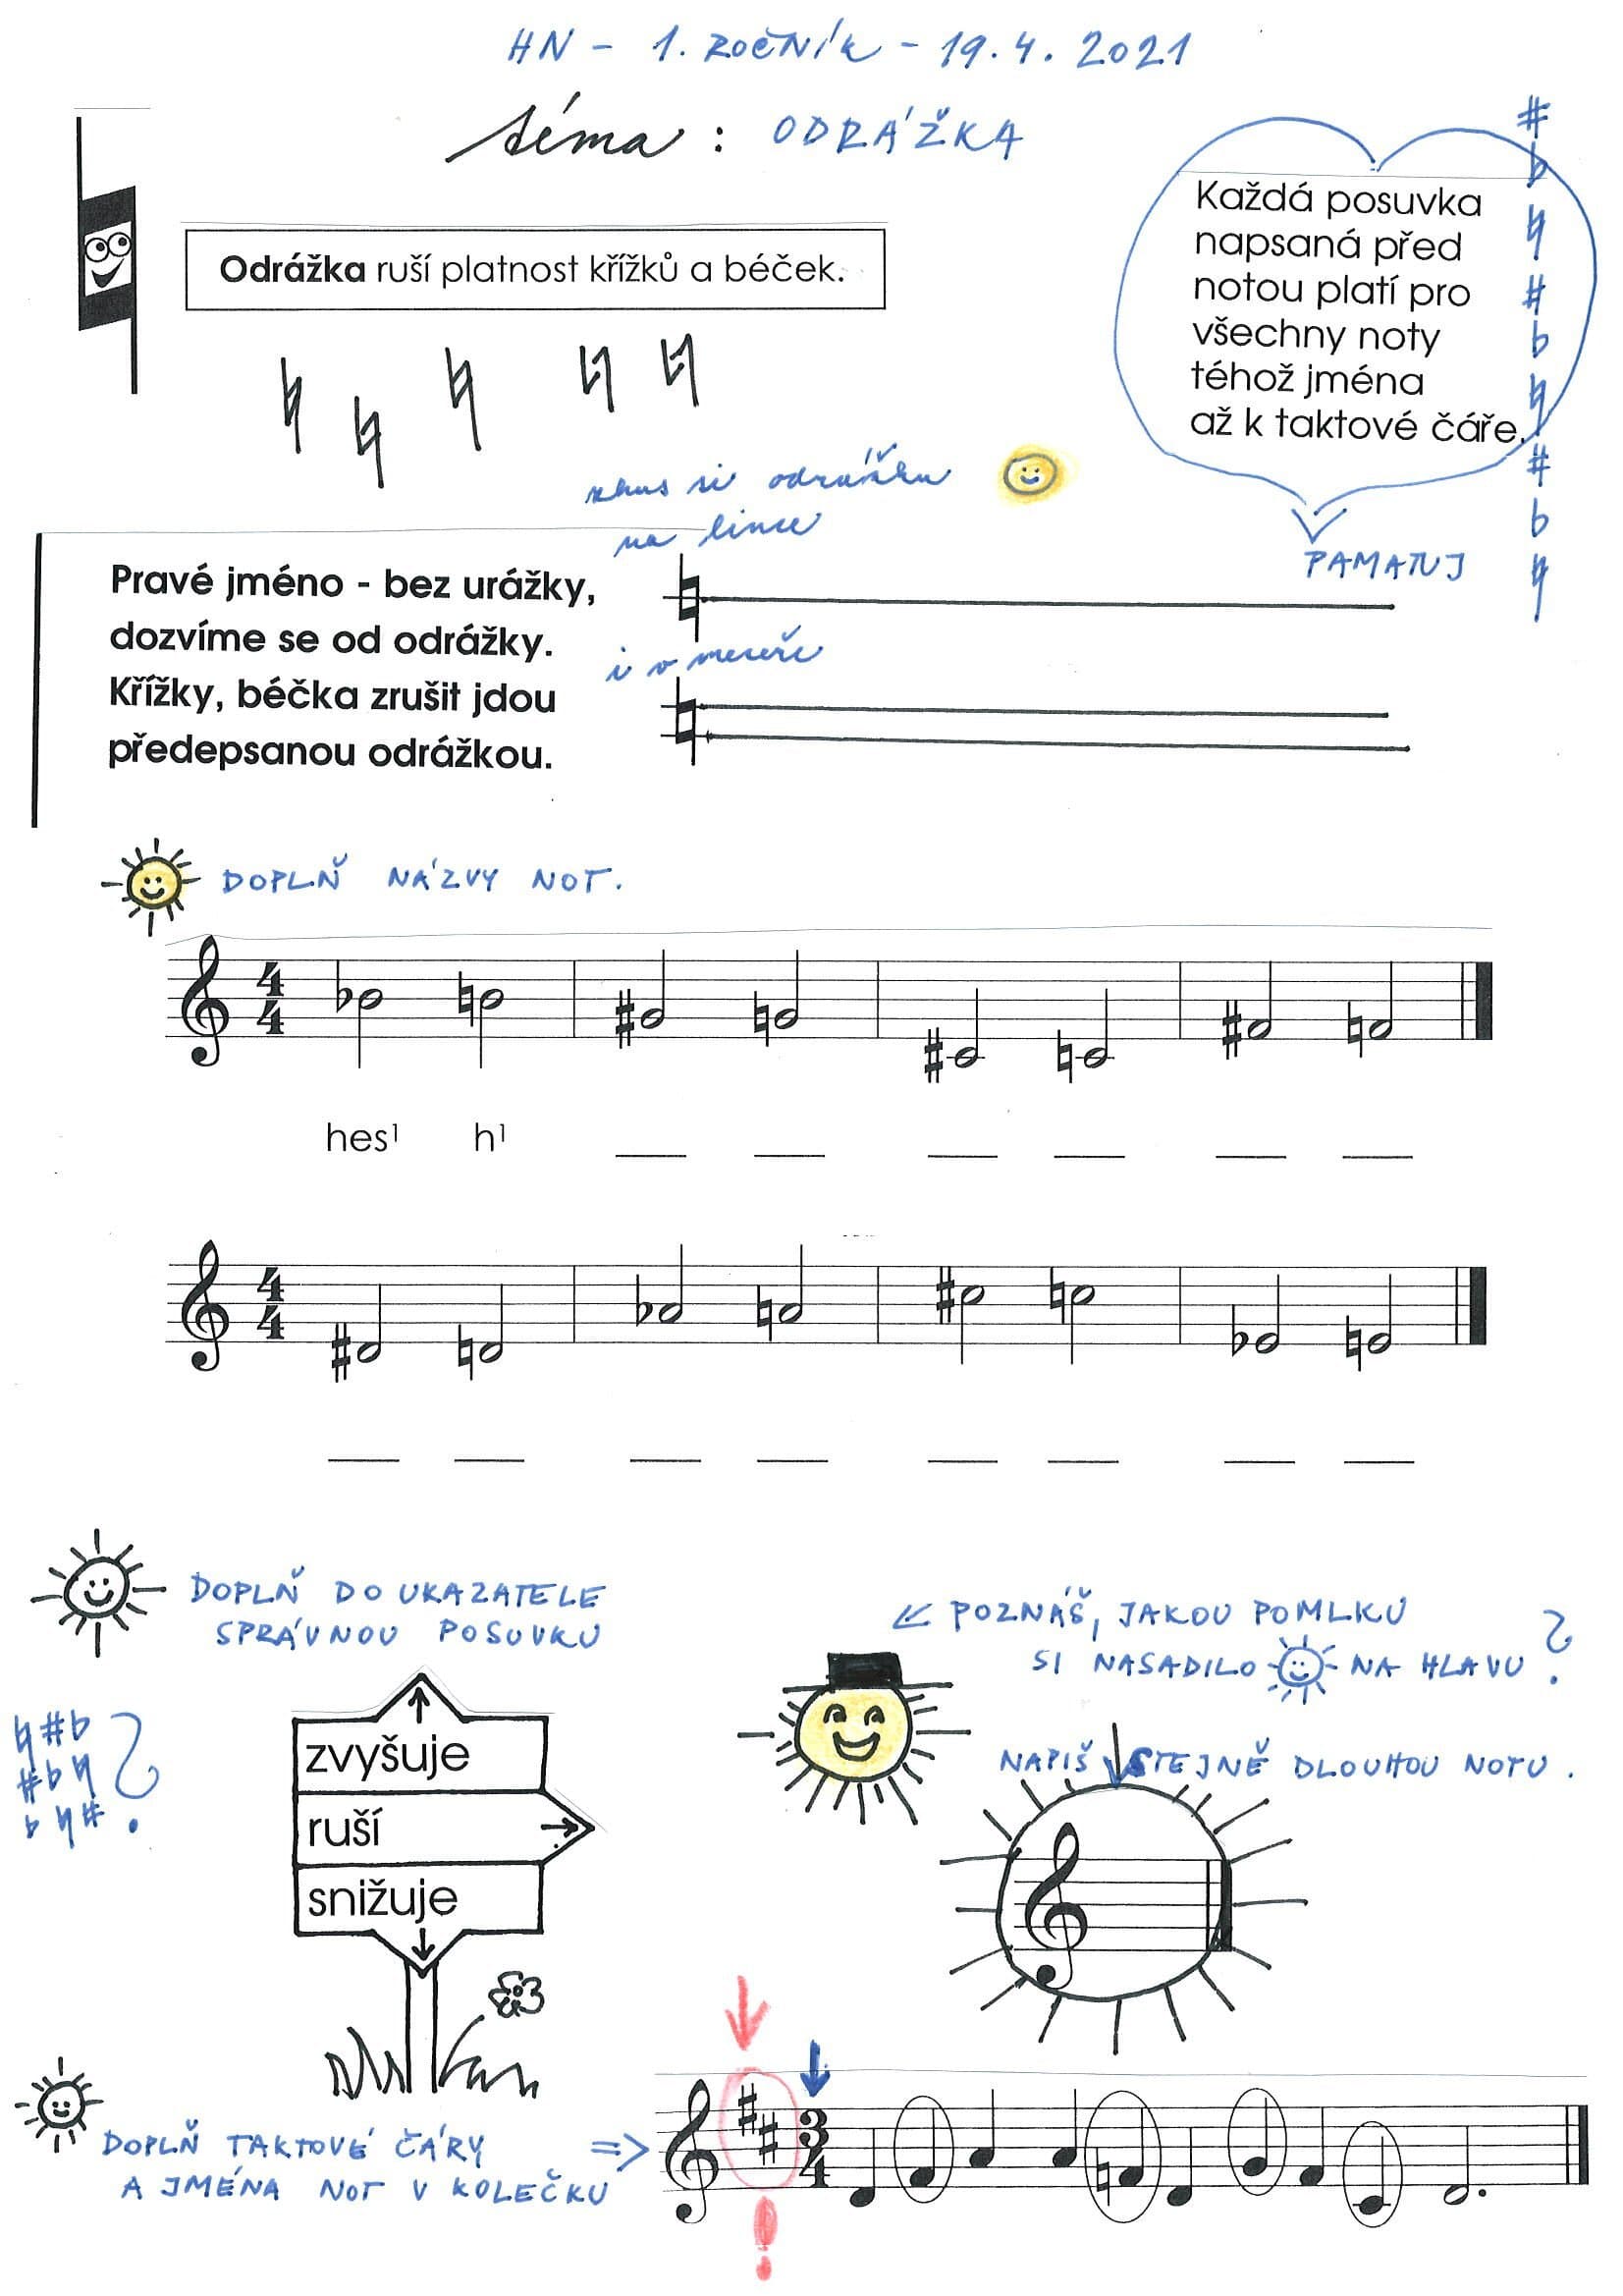 HN - 1. ROČNÍK - 19.4.2021
téma : ODRÁŽKA
Odrážka ruší platnost křížků a béček.
Každá posuvka
napsaná před
notou platí pro
všechny noty
téhož jména
až k taktové čáře.
PAMATUJ
zkus si odrážku
na lince
i v mezeře
Pravé jméno - bez urážky,
dozvíme se od odrážky.
Křížky, béčka zrušit jdou
předepsanou odrážkou.
DOPLŇ NÁZVY NOT.
4
4
hes¹ h¹
4
4
DOPLŇ DO UKAZATELE
SPRÁVNOU POSUVKU
♮#♭
#♭♮ ?
♭♮#
zvyšuje
ruší
snižuje
POZNÁŠ, JAKOU POMLKU
SI NASADILO NA HLAVU ?
NAPIŠ STEJNĚ DLOUHOU NOTU.
DOPLŇ TAKTOVÉ ČÁRY
A JMÉNA NOT V KOLEČKU
3
4
!